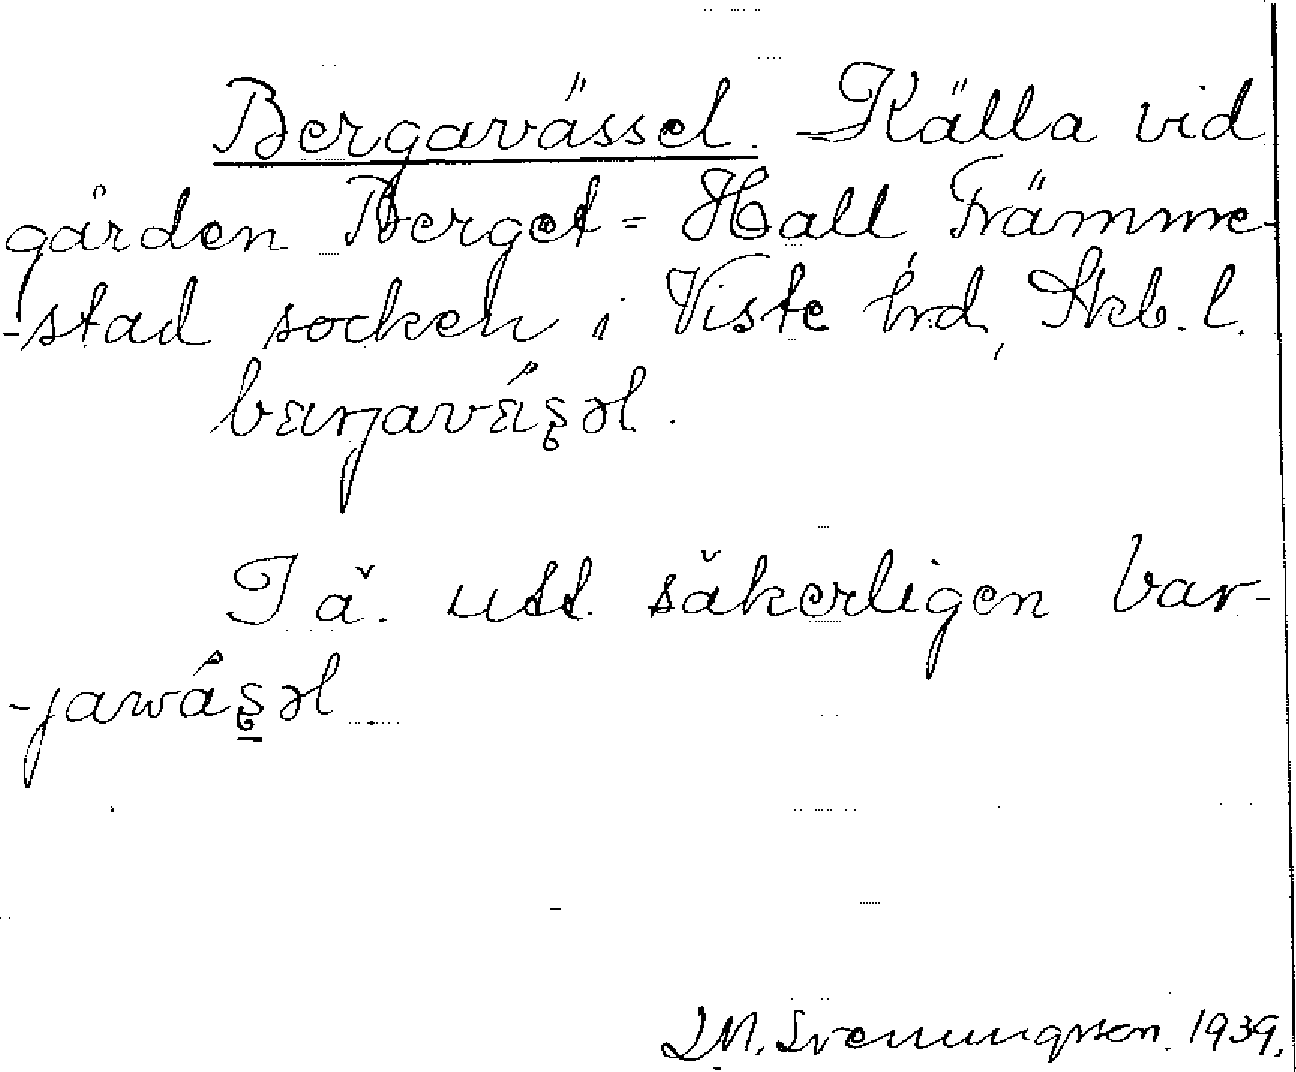 Bergavässel. Källa vid
gården Berget = Hall, Främme-
-stad socken i Viste hrd, Skb. l.
bærjavǽʂəl.
I ä. utt. säkerligen bar-
-jawáʂəl
J.M. Svenungsson. 1939.